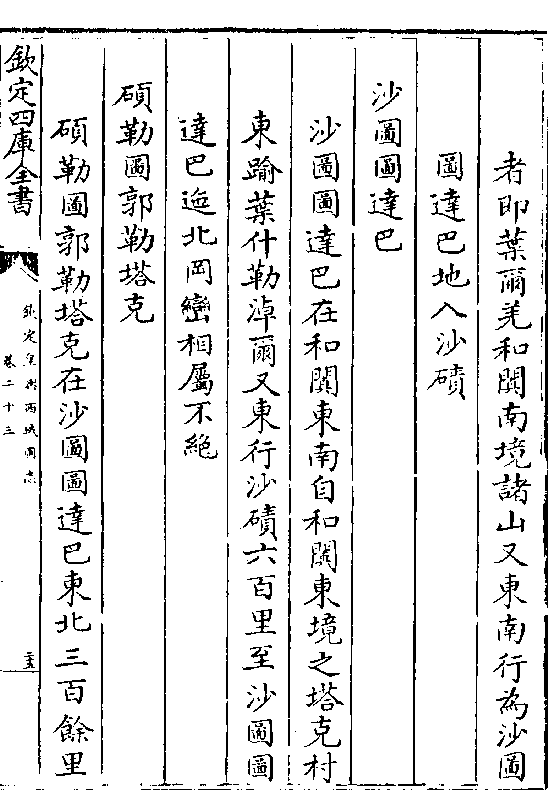 者即葉爾羌和闐南境諸山又東南行為沙圖
圖達巴地入沙磧
沙圖圖達巴
沙圖圖達巴在和闐東南自和闐東境之塔克村
東踰葉什勒淖爾又東行沙磧六百里至沙圖圖
達巴迤北岡巒相屬不絶
碩勒圖郭勒塔克
碩勒圖郭勒塔克在沙圖圖達巴東北三百餘里
欽定四庫全書
欽定皇輿西域圖志
卷二十三
二五